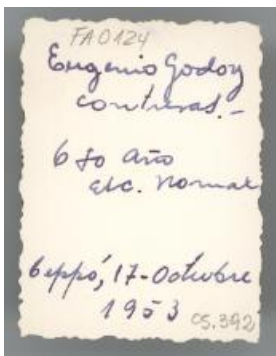 FA0124
Eugenio Godoy
Contreras.-
6to Año
Esc. Normal
17-Octubre
1953
CS.392